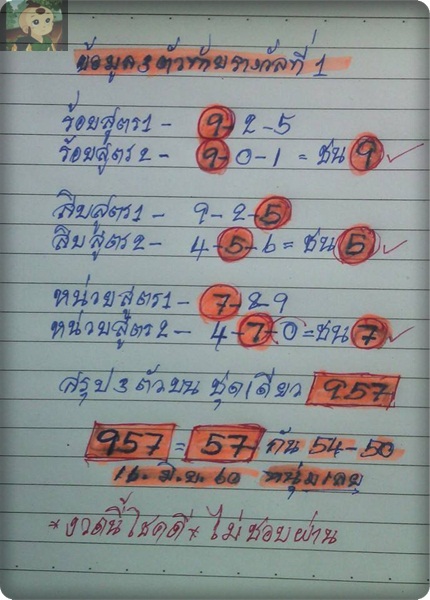 ข้อมูล 3 ตัวท้ายรางวัลที่ 1
ร้อยสูตร 1 - 9-2-5
ร้อยสูตร 2 - 9-0-1 = ชน 9 ✓
สิบสูตร 1 - 9-2-5
สิบสูตร 2 - 4-5-6 = ชน 5 ✓
หน่วยสูตร 1 - 7-8-9
หน่วยสูตร 2 - 4-7-0 = ชน 7 ✓
สรุป 3 ตัวบน ชุดเดียว 957
957 = 57 กัน 54-50
16. มิ.ย. 60 หนุ่มเลย
*งวดนี้โชคดี* ไม่ชอบผ่าน